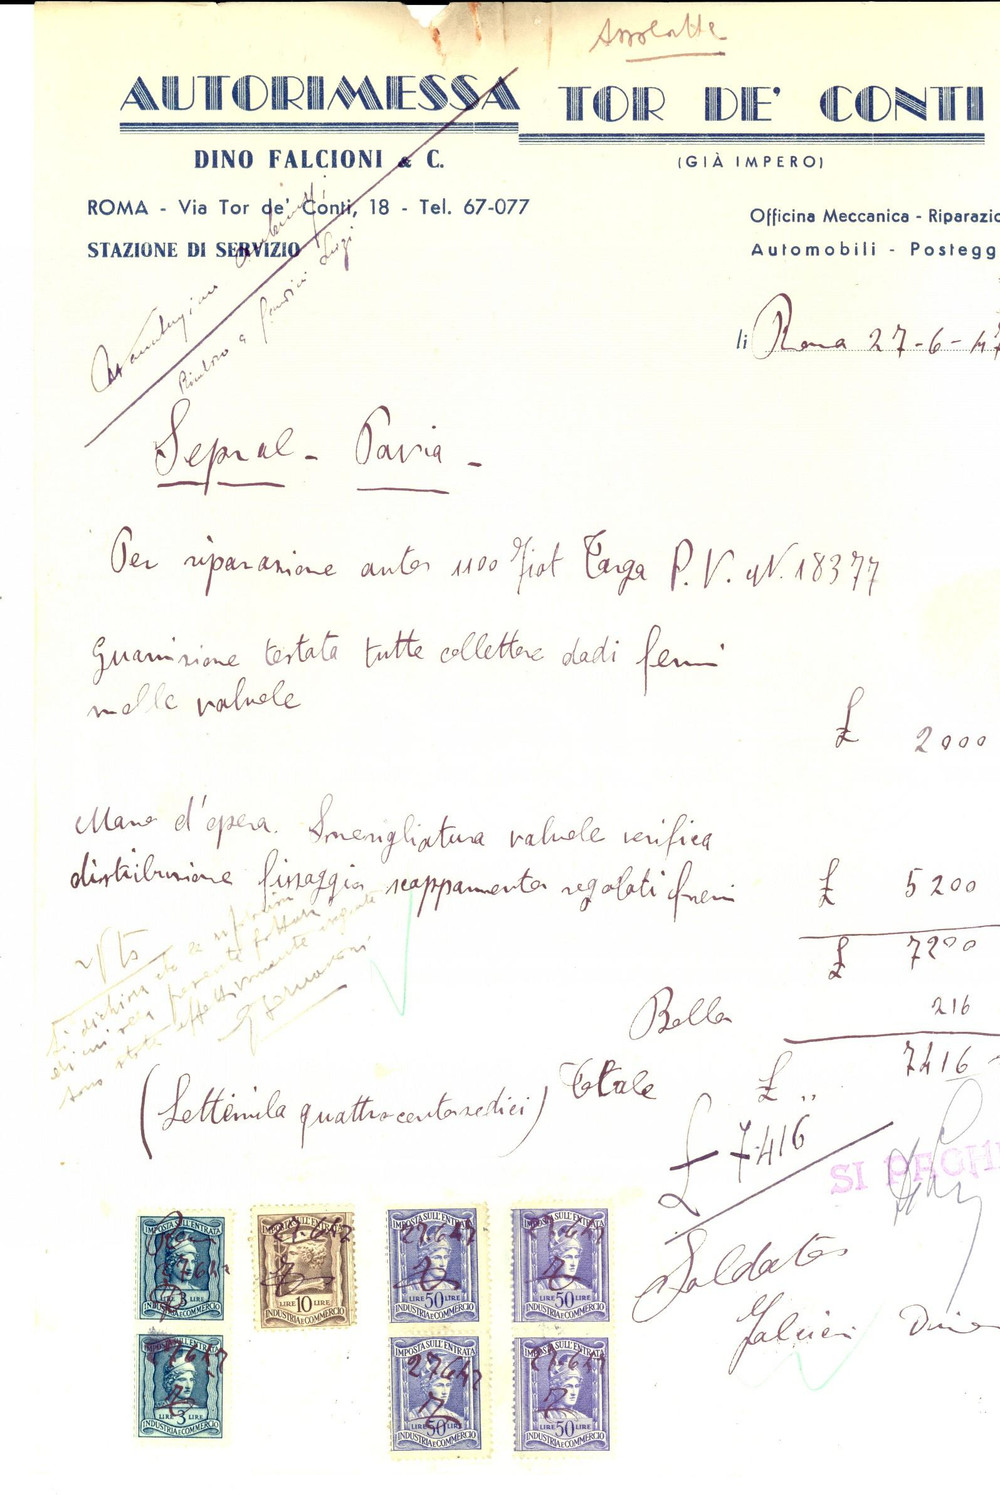 AUTORIMESSA TOR DE' CONTI
DINO FALCIONI & C.
(GIÀ IMPERO)
ROMA - Via Tor de' Conti, 18 - Tel. 67-077
STAZIONE DI SERVIZIO
Officina Meccanica - Riparazio
Automobili - Postegg
li Roma 27-6-47
Rimborso a Luigi
Sepral - Pavia -
Per riparazione auto 1100 Fiat Targa P.V. N. 18377
Guarnizione testata tutte collettore dadi freni
molle valvole
£ 2000
Mano d'opera. Smerigliatura valvole verifica
distribuzione fissaggio scappamento regolati freni £ 5200
£ 7200
Bollo 216
Totale £ .. 7416
(Settemila quattrocentosedici)
£ 7416
Si dichiara che le riparazioni
di cui alla presente fattura
sono state effettivamente eseguite
SI PAGHI
Saldato
Falcioni Dino
IMPOSTA SULL'ENTRATA
Roma
27.6.47
LIRE 3 LIRE
INDUSTRIA E COMMERCIO
IMPOSTA SULL'ENTRATA
27.6.47
LIRE 10 LIRE
INDUSTRIA E COMMERCIO
IMPOSTA SULL'ENTRATA
27.6.47
LIRE 50 LIRE
INDUSTRIA E COMMERCIO
IMPOSTA SULL'ENTRATA
27.6.47
LIRE 50 LIRE
INDUSTRIA E COMMERCIO
IMPOSTA SULL'ENTRATA
27.6.47
LIRE 3 LIRE
INDUSTRIA E COMMERCIO
IMPOSTA SULL'ENTRATA
27.6.47
LIRE 50 LIRE
INDUSTRIA E COMMERCIO
IMPOSTA SULL'ENTRATA
27.6.47
LIRE 50 LIRE
INDUSTRIA E COMMERCIO